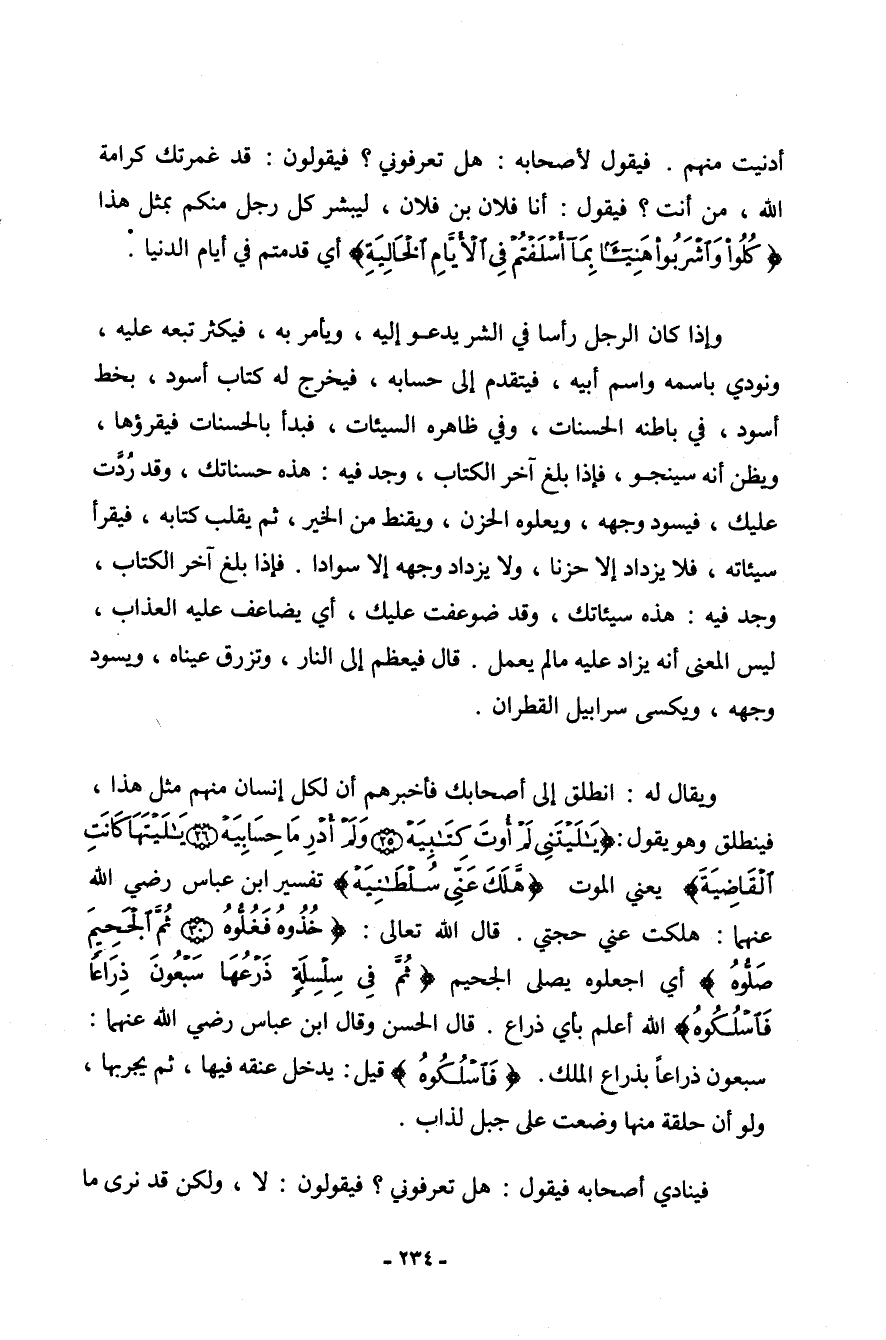 أدنيت منهم . فيقول لأصحابه : هل تعرفوني ؟ فيقولون : قد غمرتك كرامة
الله ، من أنت ؟ فيقول : أنا فلان بن فلان ، ليبشر كل رجل منكم بمثل هذا
﴿ كُلُوا۟ وَٱشْرَبُوا۟ هَنِيٓـَٔۢا بِمَآ أَسْلَفْتُمْ فِى ٱلْأَيَّامِ ٱلْخَالِيَةِ ﴾ أي قدمتم في أيام الدنيا .
وإذا كان الرجل رأسا في الشر يدعـو إليه ، ويأمر به ، فيكثر تبعه عليه ،
ونودي باسمه واسم أبيه ، فيتقدم إلى حسابه ، فيخرج له كتاب أسود ، بخط
أسود ، في باطنه الحسنات ، وفي ظاهره السيئات ، فبدأ بالحسنات فيقرؤها ،
ويظن أنه سينجـو ، فإذا بلغ آخر الكتاب ، وجد فيه : هذه حسناتك ، وقد رُدَّت
عليك ، فيسود وجهه ، ويعلوه الحزن ، ويقنط من الخير ، ثم يقلب كتابه ، فيقرأ
سيئاته ، فلا يزداد إلا حزنا ، ولا يزداد وجهه إلا سوادا . فإذا بلغ آخر الكتاب ،
وجد فيه : هذه سيئاتك ، وقد ضوعفت عليك ، أي يضاعف عليه العذاب ،
ليس المعنى أنه يزاد عليه مالم يعمل . قال فيعظم إلى النار ، وتزرق عيناه ، ويسود
وجهه ، ويكسى سرابيل القطران .
ويقال له : انطلق إلى أصحابك فأخبرهم أن لكل إنسان منهم مثل هذا ،
فينطلق وهو يقول : ﴿ يَٰلَيْتَنِى لَمْ أُوتَ كِتَٰبِيَهْ ٢٥ وَلَمْ أَدْرِ مَا حِسَابِيَهْ ٢٦ يَٰلَيْتَهَا كَانَتِ
ٱلْقَاضِيَةَ ﴾ يعني الموت ﴿ هَّلَكَ عَنِّى سُلْطَٰنِيَهْ ﴾ تفسير ابن عباس رضي الله
عنهما : هلكت عني حجتي . قال الله تعالى : ﴿ خُذُوهُ فَغُلُّوهُ ٣٠ ثُمَّ ٱلْجَحِيمَ
صَلُّوهُ ﴾ أي اجعلوه يصلى الجحيم ﴿ ثُمَّ فِى سِلْسِلَةٍ ذَرْعُهَا سَبْعُونَ ذِرَاعًا
فَٱسْلُكُوهُ ﴾ الله أعلم بأي ذراع . قال الحسن وقال ابن عباس رضي الله عنهما :
سبعون ذراعاً بذراع الملك . ﴿ فَٱسْلُكُوهُ ﴾ قيل : يدخل عنقه فيها ، ثم يجربها ،
ولو أن حلقة منها وضعت على جبل لذاب .
فينادي أصحابه فيقول : هل تعرفوني ؟ فيقولون : لا ، ولكن قد نرى ما
- ٢٣٤ -